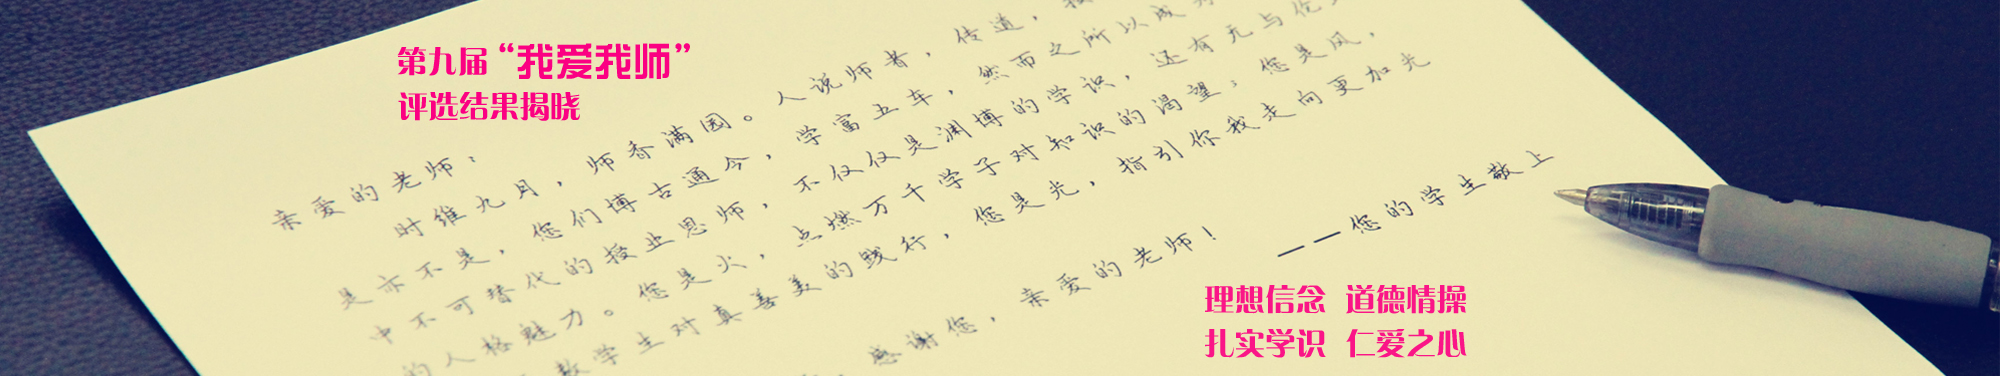 第九届“我爱我师”
评选结果揭晓
亲爱的老师：
时维九月，师香满园。人说师者，传道，
是亦不是，您们博古通今，学富五车，然而之所以成为
中不可替代的授业恩师，不仅仅是渊博的学识，还有无与伦
的人格魅力。您是火，点燃万千学子对知识的渴望；您是风，
数学生对真善美的践行，您是光，指引你我走向更加光
感谢您，亲爱的老师！
——您的学生敬上
理想信念 道德情操
扎实学识 仁爱之心